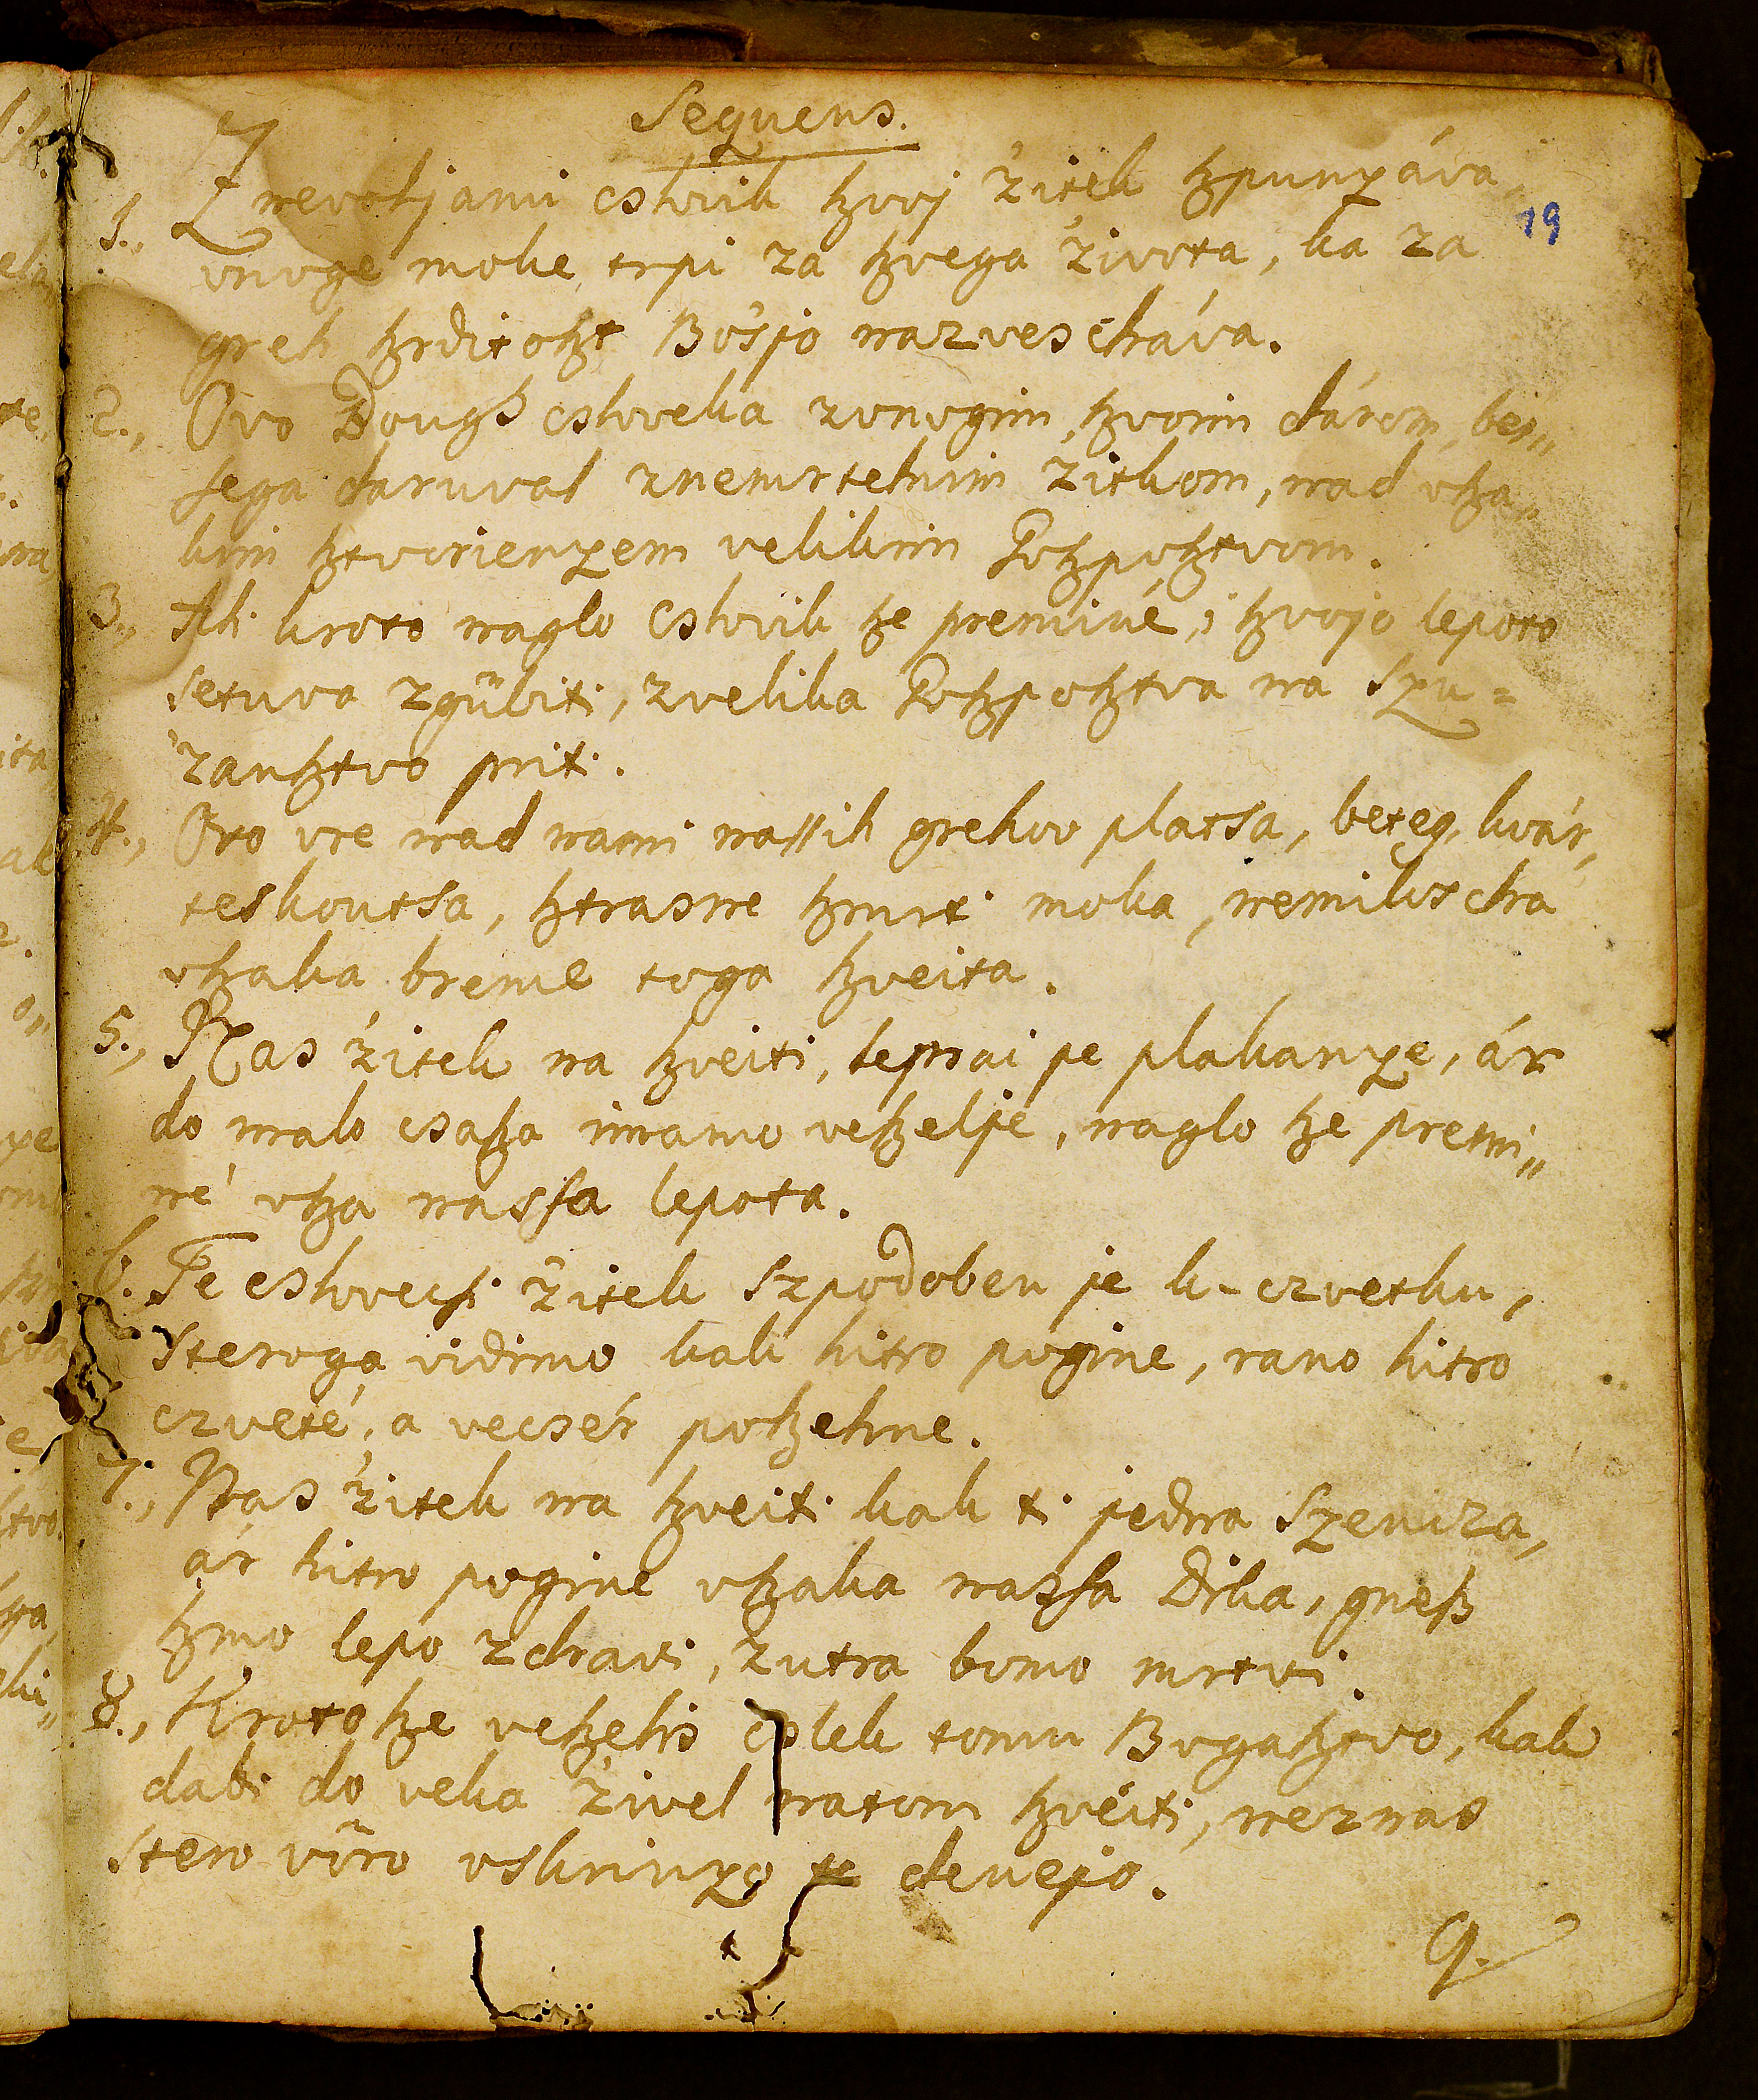 Sequens.
1., Z nevoljami cslovik ſzvoj 'zitek ſzpunyáva,
19
vnoge moke, trpi za ſzvega 'zivota, ka za
greh ſzrditoſzt Bo'sjo nazvescháva.
2., Ovo Dougſs csloveka zvnogim ſzvoim dárom, bei„
sega daruval znemrtelnim 'zitkom, nad vſza„
kim ſztvorienyem velikim Goſzpoſztvom.
3., Ali kroto naglo cslovik ſze preminé, i ſzvojo lepoto
setuva zgübiti, zvelika Goſzpoſztva na Szu=
'zanſztvo priti.
4., Oro vre nad nami naſſih grehov platsa, beteg, kvár,
teskoutsa, ſztrasne ſzmrti moka, nemiloscha
vſzaka breme toga ſzveita.
5., Nas 'zitek na ſzveiti, lepsai pe plakanye, ár
do malo csaſza imamo veſzelje, naglo ſze premi„
né vſza nassa lepota.
6. Te cslovecsi 'zitek szpodoben je k-czvetku,
steroga vidimo kak hitro pogine, rano hitro
czveté, a vecsér poſzehne.
7., Nas 'zitek na ſzveiti kak ti jedna Szenicza,
ár hitro pogine vſzaka nassa Dika, gneſs
ſzmo lepo zdravi, zutra bomo mrtvi.
8., Kroto ſze veſzelis cslek tomu Bogaſztvo, kak
dabi do veka 'zivel natom ſzveiti, neznas
stero vüro vskrinyo te denejo.
9.